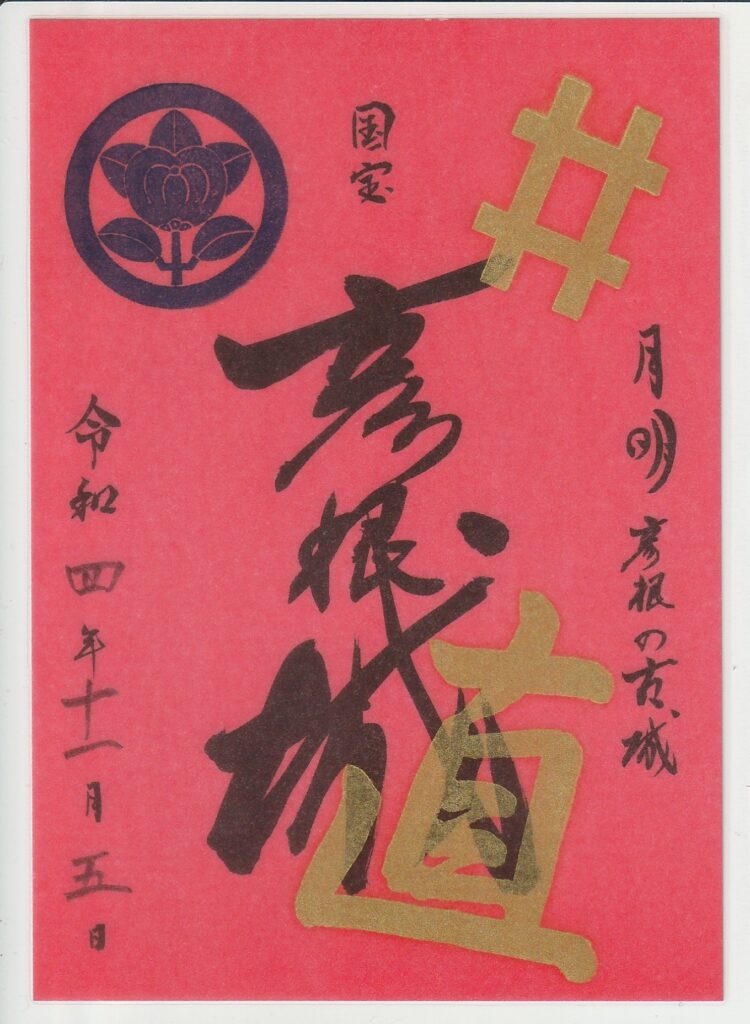 井
月明 彦根の古城
国宝
彦根城
直
令和四年十一月五日